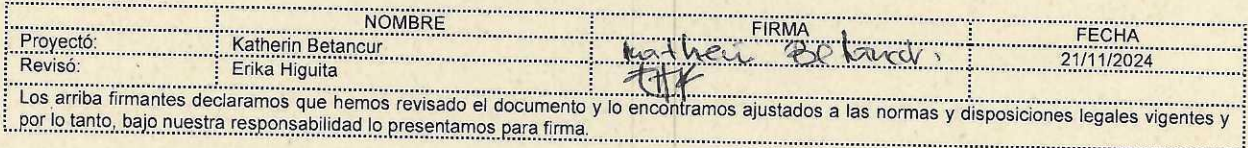 NOMBRE FIRMA FECHA
Proyectó: Katherin Betancur Katherin Betancur. 21/11/2024
Revisó: Erika Higuita
Los arriba firmantes declaramos que hemos revisado el documento y lo encontramos ajustados a las normas y disposiciones legales vigentes y
por lo tanto, bajo nuestra responsabilidad lo presentamos para firma.